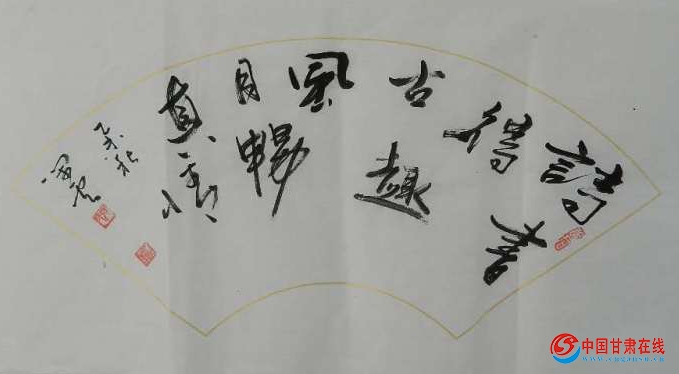 詩書
得
古趣
風
月暢
真情
乙未秋
中国甘肃在线